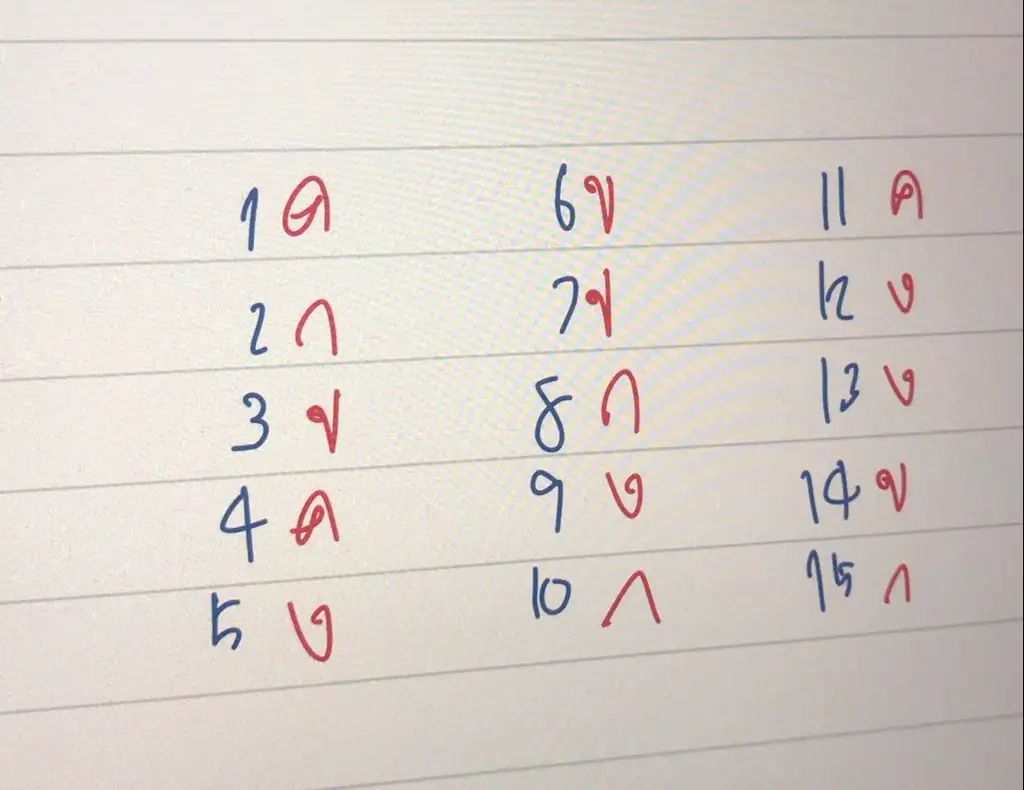 1 ค 6 ข 11 ค
2 ก 7 ข 12 ง
3 ข 8 ก 13 ง
4 ค 9 ง 14 ข
5 ง 10 ก 15 ก